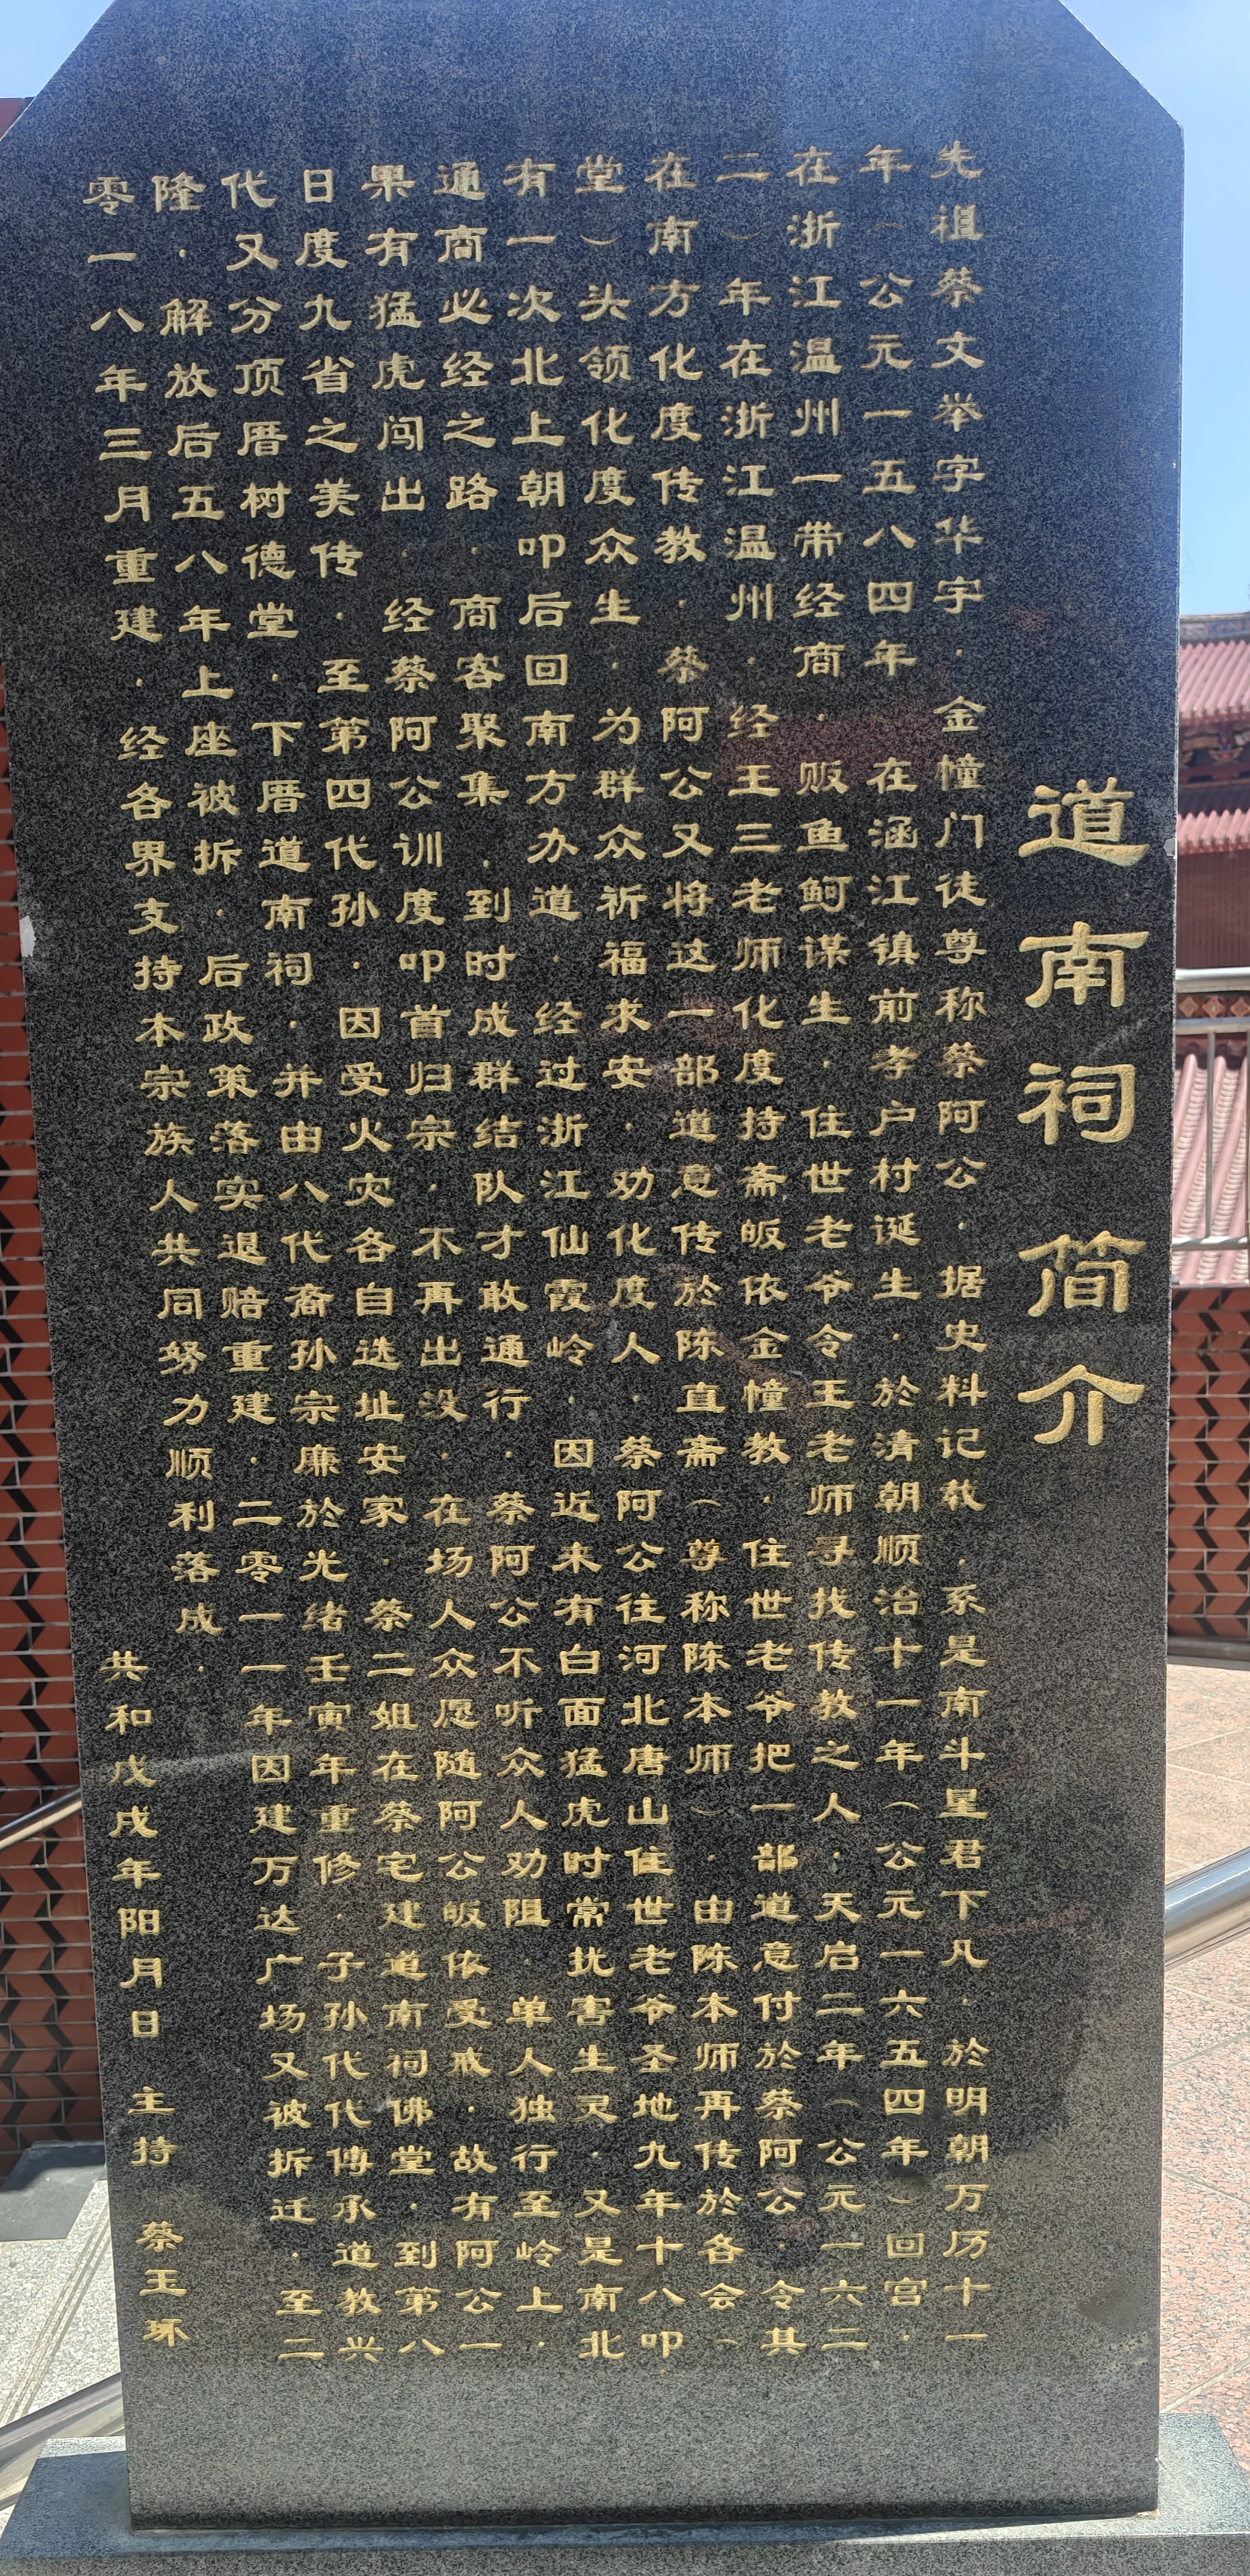 道南祠简介
先祖蔡文举字华宇·金幢门徒尊称蔡阿公·据史料记载·系是南斗星君下凡·於明朝万历十一
年（公元一五八四年在涵江镇前孝户村诞生·於清朝顺治十一年（公元一六五四年）回宫·
在浙江温州一带经商·贩鱼鲄谋生·住世老爷令王老师寻找传教之人·天启二年（公元一六二
二）年在浙江温州·经王三老师化度持斋皈依金幢教·住世老爷把一部道意付於蔡阿公·令其
在南方化度传教·蔡阿公又将这一部道意传於陈直斋（尊称陈本师）·由陈本师再传於各会（
堂）头领化度众生·为群众祈福求安·劝化度人·蔡阿公往河北唐山住世老爷圣地九年十八叩
有一次北上朝叩后回南方办道·经过浙江仙霞岭·因近来有白面猛虎时常扰害生灵·又是南北
通商必经之路·商客聚集·到时成群结队才敢通行·蔡阿公不听众人劝阻·单人独行至岭上·
果有猛虎闯出·经蔡阿公训度叩首归宗·不再出没·在场人众愿随阿公皈依受戒·故有阿公一
日度九省之美传·至第四代孙·因受火灾各自选址安家·蔡二姐在蔡宅建道南祠佛堂·到第八
代又分顶厝树德堂·下厝道南祠·并由八代裔孙宗廉於光绪壬寅年重修·子孙代代傅承道教兴
隆·解放后五八年上座被拆·后政策落实退赔重建·二零一一年因建万达广场又被拆迁·至二
零一八年三月重建·经各界支持本宗族人共同努力顺利落成·
共和戊戌年阳月日 主持 蔡玉琢